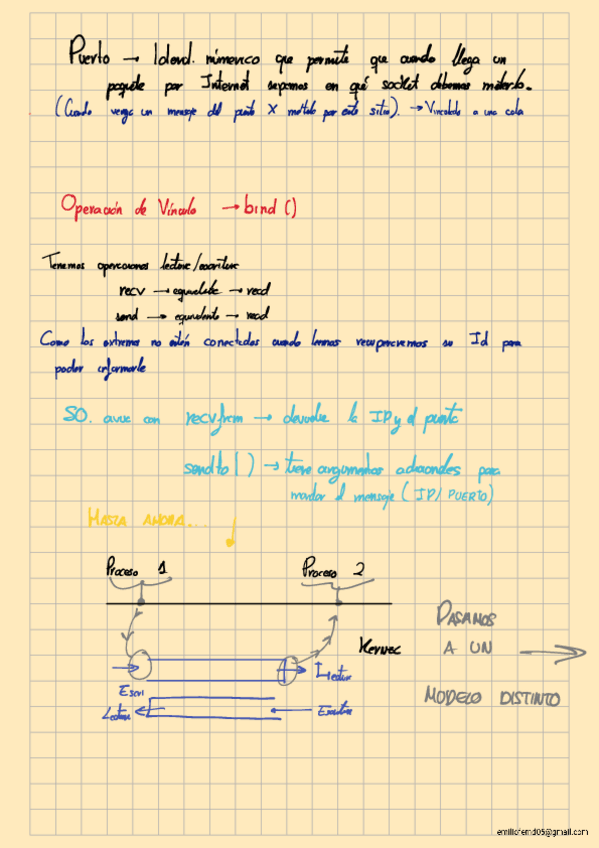 Puerto → Idend. númerico que permite que cuando llega un
paquete por Internet sepamos en qué socket debemos meterlo.
(Cuando venga un mensaje del puerto X metelo por este sitio). → Vinculado a una cola
Operación de Vínculo → bind ()
Tenemos operaciones lectura/escritura
recv → equivalente → read
send → equivalente → read
Como los extremos no están conectados cuando leemos recuperaremos su Id para
poder informarle
SO. con recvfrom → devuelve la IP y el puerto
sendto () → tiene argumentos adicionales para
mandar el mensaje (IP/ PUERTO)
HASTA AHORA...
Proceso 1 Proceso 2
Kernel
Escri
Lectura
Lectura
Escritura
PASAMOS
A UN →
MODELO DISTINTO
emiliofernd05@gmail.com